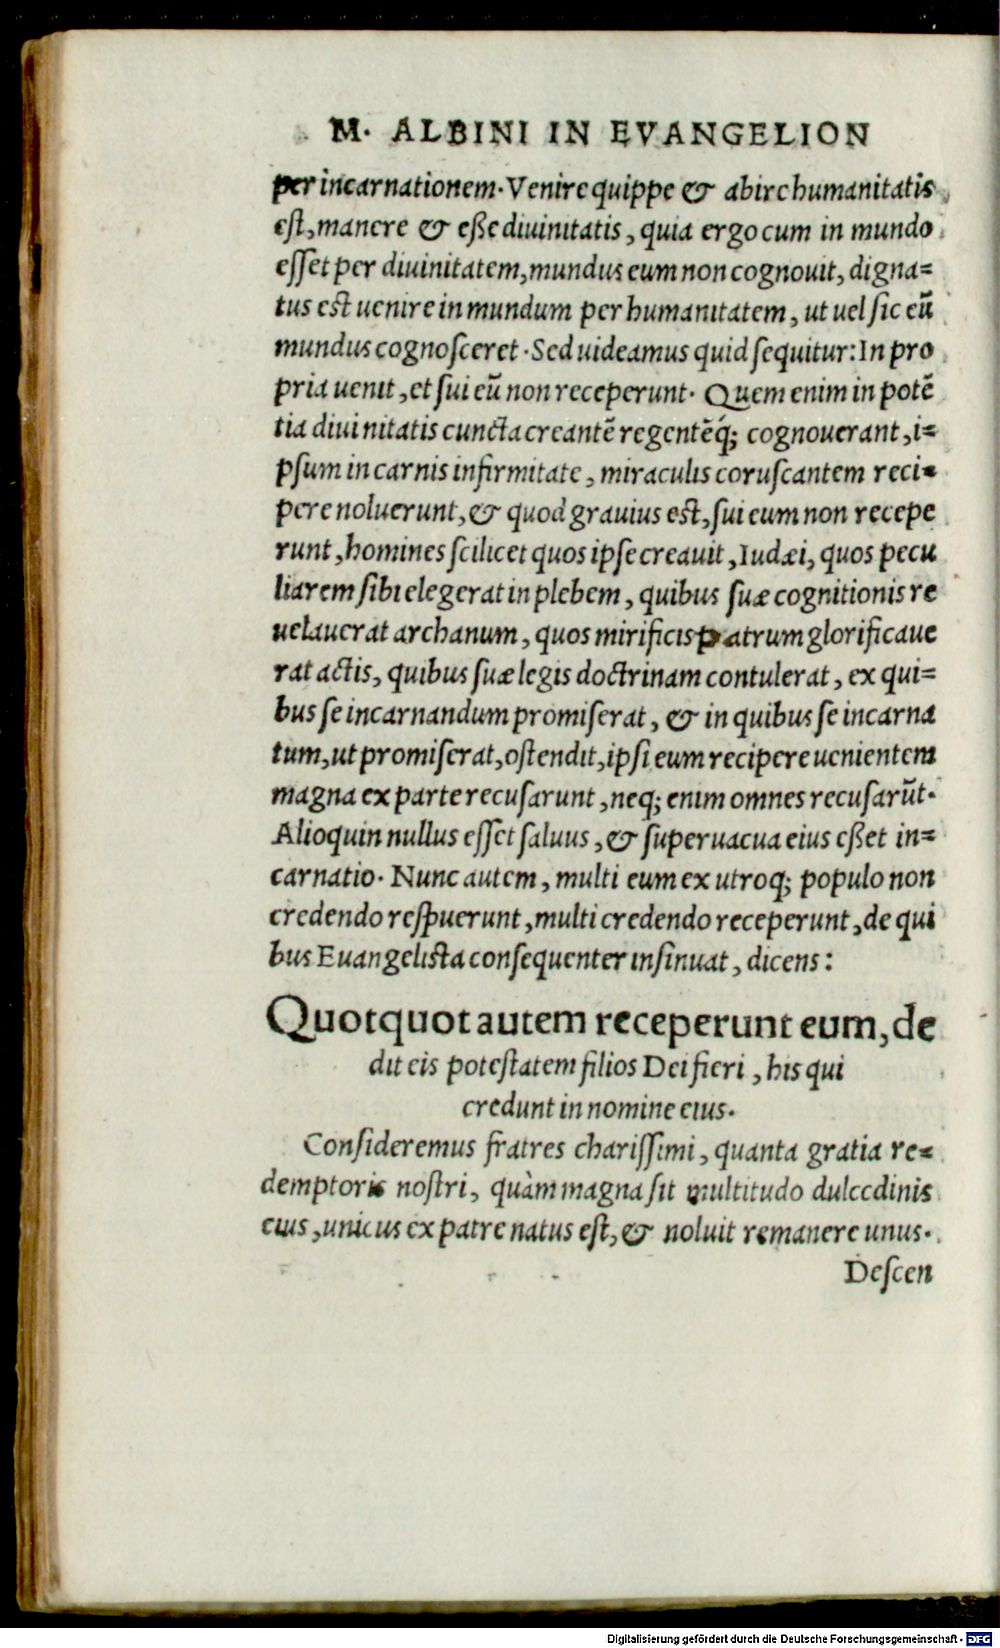 M. ALBINI IN EVANGELION
per incarnationem. Venire quippe & abire humanitatis
est, manere & eße diuinitatis, quia ergo cum in mundo
esset per diuinitatem, mundus eum non cognouit, digna=
tus est uenire in mundum per humanitatem, ut uel sic eũ
mundus cognosceret. Sed uideamus quid sequitur: In pro
pria uenit, et sui eũ non receperunt. Quem enim in potẽ
tia diuinitatis cuncta creantẽ regentẽq; cognouerant, i=
psum in carnis infirmitate, miraculis coruscantem reci=
pere noluerunt, & quod grauius est, sui eum non recepe
runt, homines scilicet quos ipse creauit, Iudæi, quos pecu
liarem sibi elegerat in plebem, quibus suæ cognitionis re
uelauerat archanum, quos mirificis patrum glorificaue
rat actis, quibus suæ legis doctrinam contulerat, ex qui=
bus se incarnandum promiserat, & in quibus se incarna
tum, ut promiserat, ostendit, ipsi eum recipere uenientem
magna ex parte recusarunt, neq; enim omnes recusarũt.
Alioquin nullus esset saluus, & superuacua eius eßet in=
carnatio. Nunc autem, multi eum ex utroq; populo non
credendo respuerunt, multi credendo receperunt, de qui
bus Euangelista consequenter insinuat, dicens:
Quotquot autem receperunt eum, de
dit eis potestatem filios Dei fieri, his qui
credunt in nomine eius.
Consideremus fratres charissimi, quanta gratia re=
demptoris nostri, quàm magna sit multitudo dulcedinis
eius, unicus ex patre natus est, & noluit remanere unus.
Descen
Digitalisierung gefördert durch die Deutsche Forschungsgemeinschaft - DFG